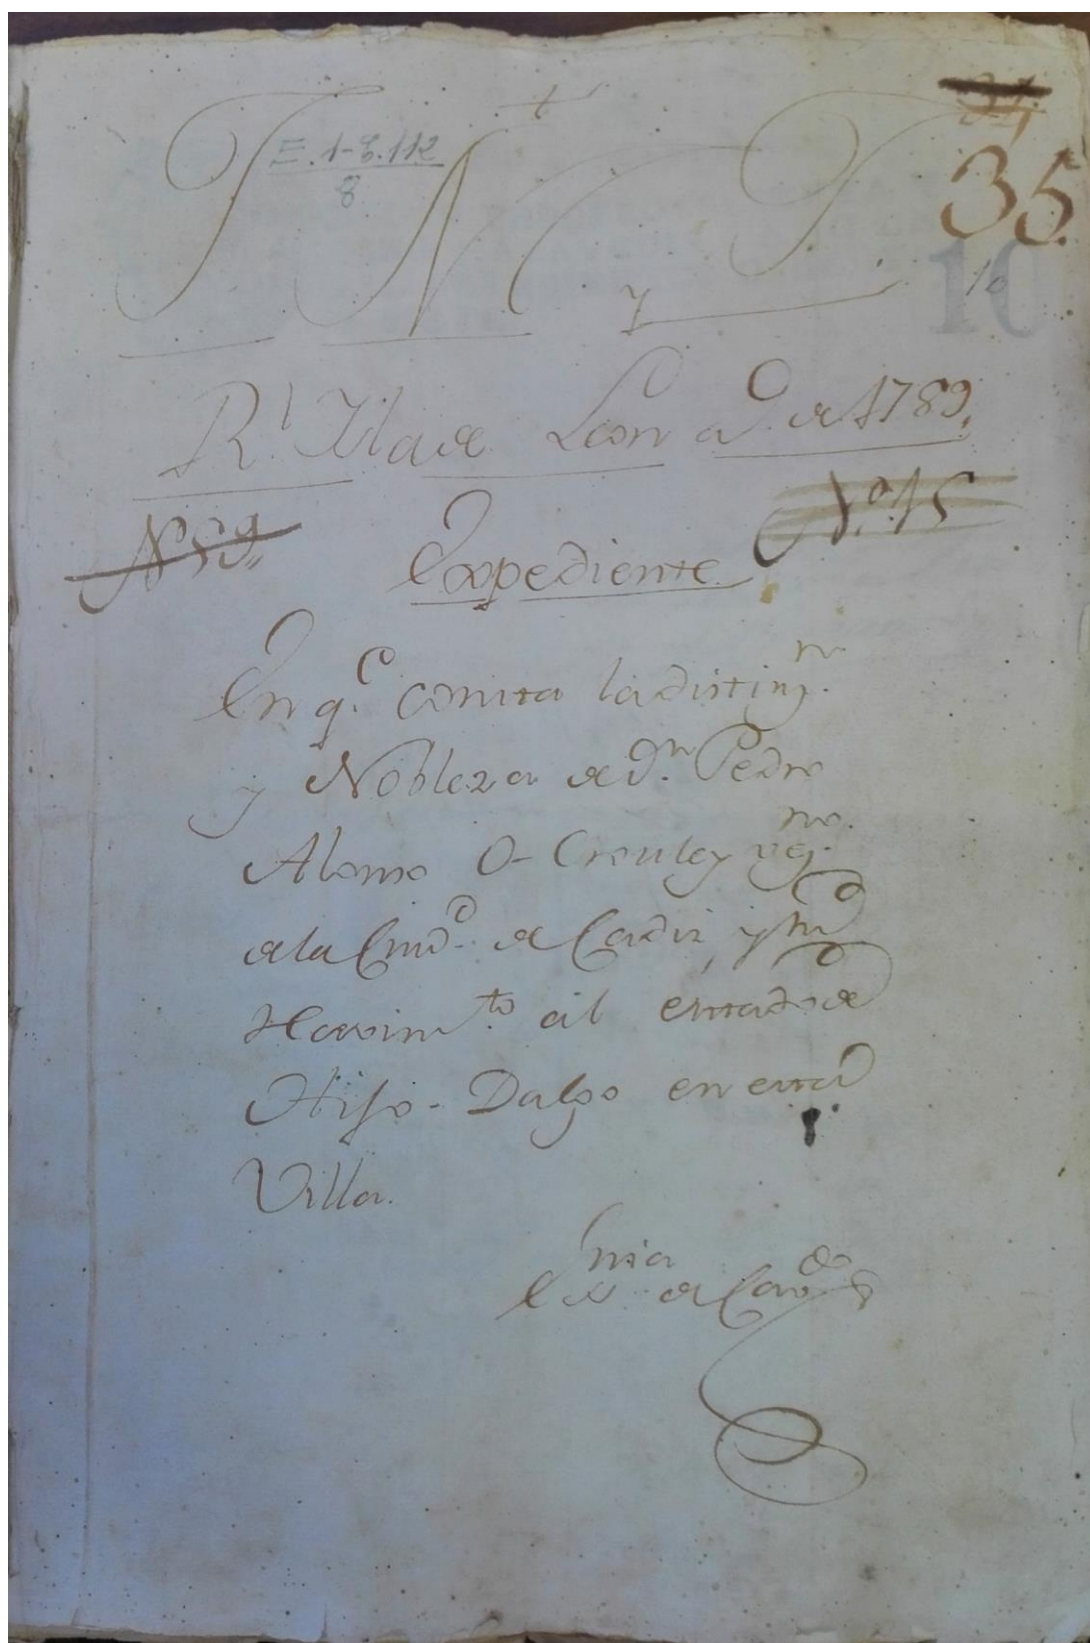 34
35
E. 1-C. 112
8
T N T
y
10
10
R.l Ysla de Leon a.o de 1789.
N 59.
N.o 15
Expediente
En q.e consta la distinz.n
y Nobleza de d.n Pedro
Alonso O-Crouley vez.no
de la Ciud.d de Cadiz, y su
Havim.to al estado de
Hijo-Dalgo en esta
Villa.